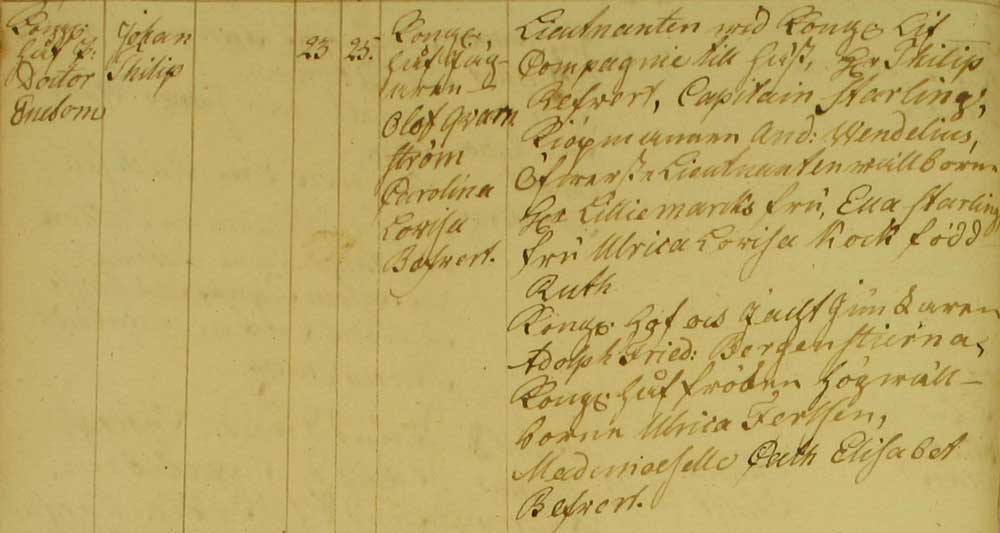 Kongl:
Håf P:
Doctor
Enebom
Johan
Philip
23 25.
Kongl.
Håf
Olof Qvarn
ström
Carolina
Lovisa
Befvert.
Lieutnanten wid Kongl. Lif
Compagnie till Häst, Hr Philip
Befvert, Capitain Starling,
Kiöpmannen And: Wendelius,
Öfwerste Lieutnanten wällborn
Hr Lilliemarcks fru, Eva Starling
fru Ulrica Lovisa Kock född
Ruth
Kongl. Hof ock Jacht Junkaren
Adolph Fried: Bergenstierna,
Kongl. Håf fröken Högwäll-
borne Ulrica Ferssen,
Mademoiselle Cath Elisabet
Befvert.